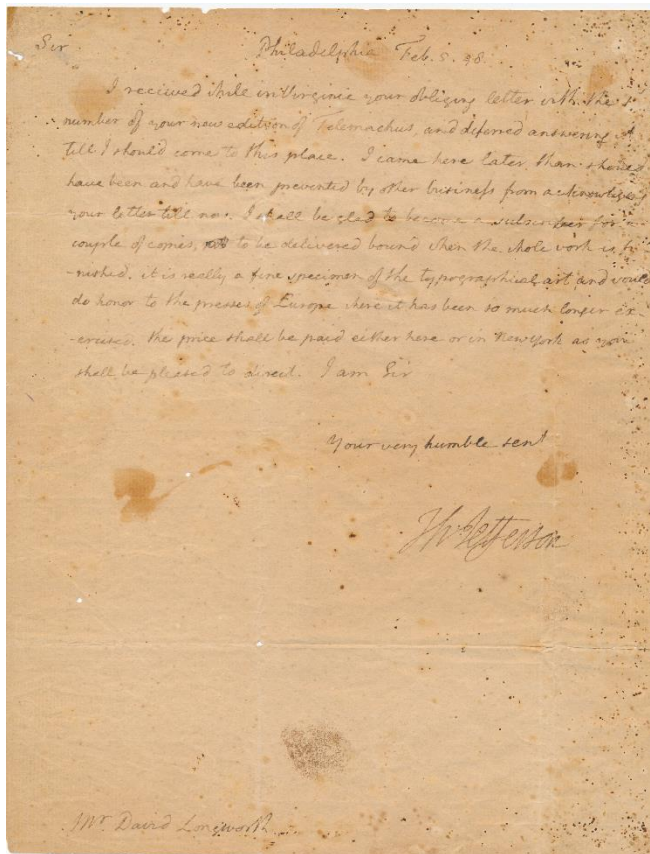 Sir Philadelphia Feb. 5. 98.
I received while in Virginia your obliging letter with the 1st
number of your new edition of Telemachus, and deferred answering it
till I should come to this place. I came here later than should
have been and have been prevented by other business from acknoleging
your letter till now. I shall be glad to become a subscriber for a
couple of copies, to be delivered bound when the whole work is fi-
-nished. it is really a fine specimen of the typographical art and would
do honor to the presses of Europe where it has been so much longer ex-
-ercised. the price shall be paid either here or in New york as you
shall be pleased to direct. I am Sir
Your very humble servt
Th: Jefferson
Mr. David Longworth